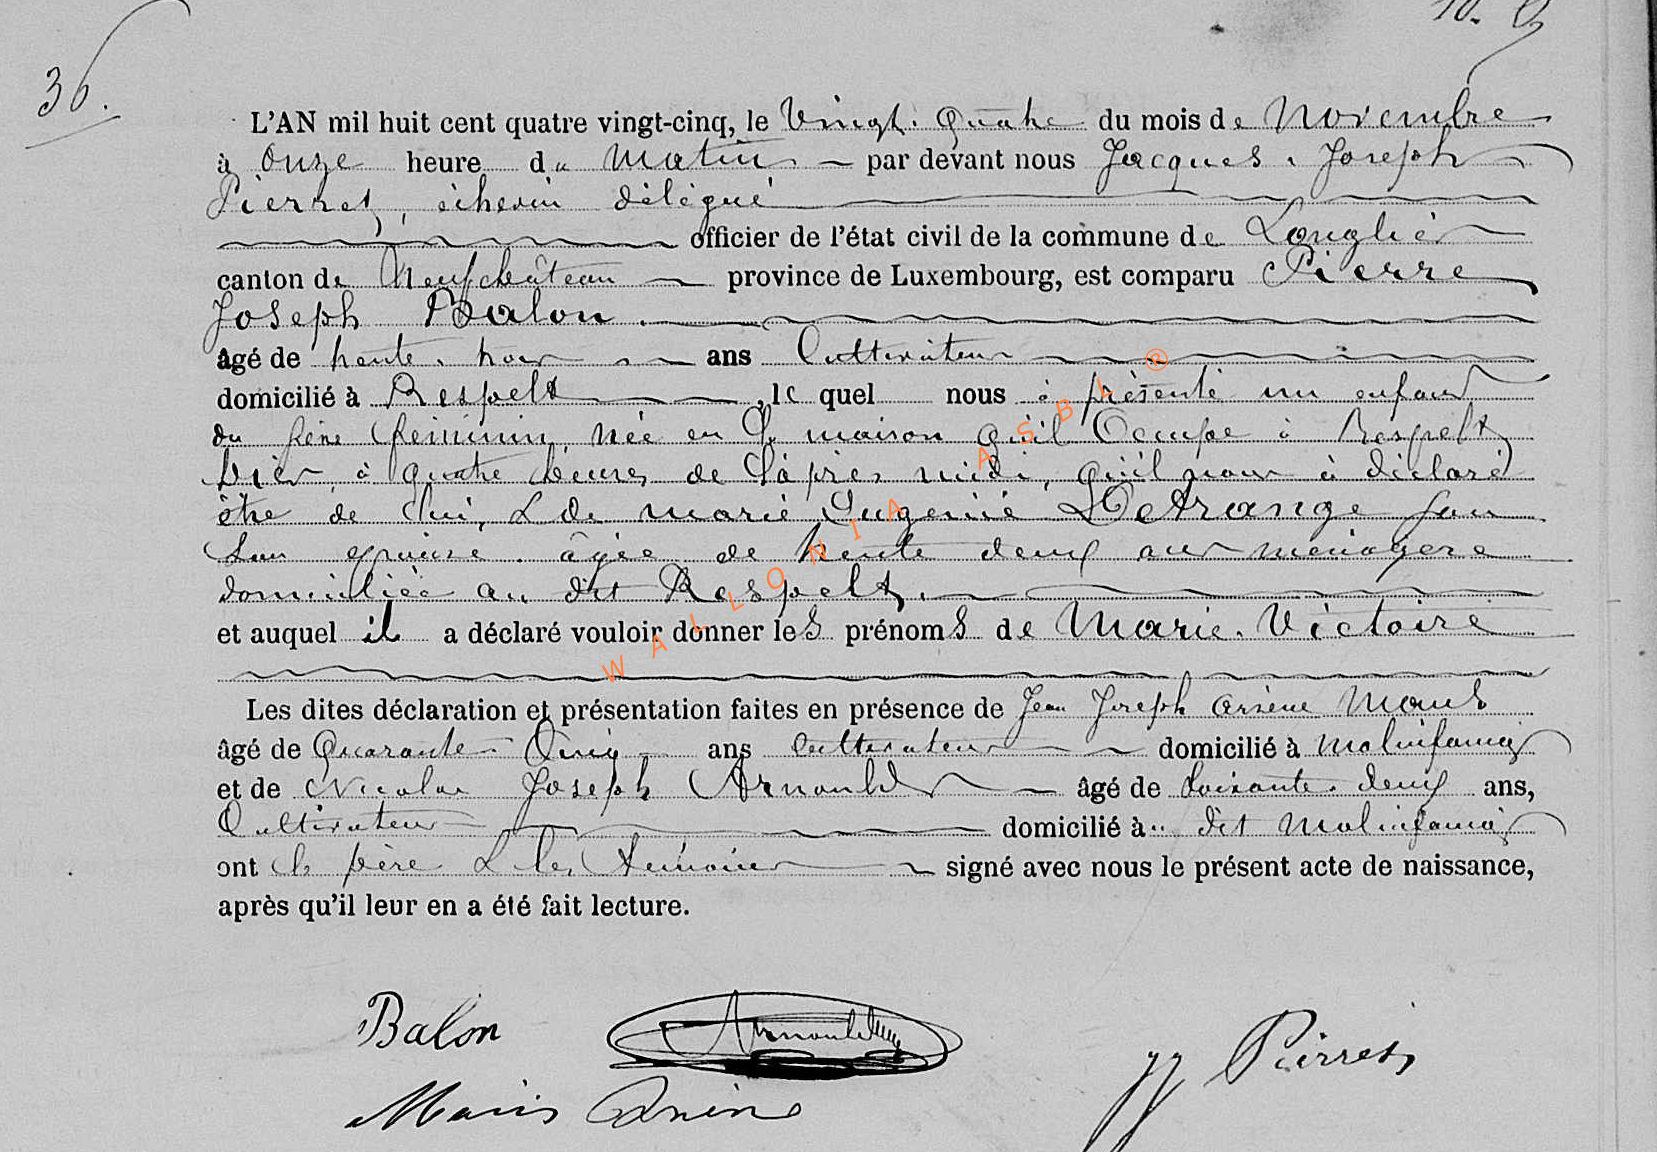 10.
36.
L'AN mil huit cent quatre vingt-cinq, le Vingt. Quatre du mois de Novembre
à Onze heure du Matin par devant nous Jacques. Joseph
Pierret, échevin délégué
officier de l'état civil de la commune de Longlier
canton de Neufchâteau province de Luxembourg, est comparu Pierre
Joseph Balon
âgé de trente. ans Cultivateur
domicilié à Respelt, le quel nous à présenté un enfant
du sexe féminin, née en Sa maison qu'il Occupe à Respelt
hier, à quatre heures de l'après midi, qu'il nous à déclaré
être de lui, & de marie Eugenie Detrange
Son épouse. âgée de trente deux ans ménagère
domiciliée au dit Respelt.
et auquel il a déclaré vouloir donner les prénoms de Marie. Victoire
Les dites déclaration et présentation faites en présence de Jean Joseph Arsène
âgé de Quarante Cinq ans Cultivateur domicilié à Molinfaing
et de Nicolas Joseph Arnould âgé de Soixante. deux ans,
Cultivateur domicilié à dit Molinfaing
ont le père & les témoins signé avec nous le présent acte de naissance,
après qu'il leur en a été fait lecture.
Balon Arnould
JJ Pierret
WALLONIA ASBL ®